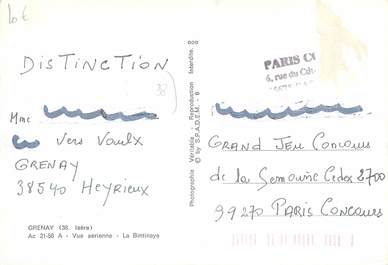 Lot
DISTINCTION
38
Mme
Vers Vaulx
GRENAY
38540 Heyrieux
GRENAY (38. Isère)
Ac 21-58 A - Vue aérienne - La Bintinaye
Photographie Véritable - Reproduction Interdite.
© by S.P.A.D.E.M. - 8
PARIS CO
6, rue du
GRAND JEU CONCOURS
de la Semaine Cedex 2700
99270 PARIS CONCOURS